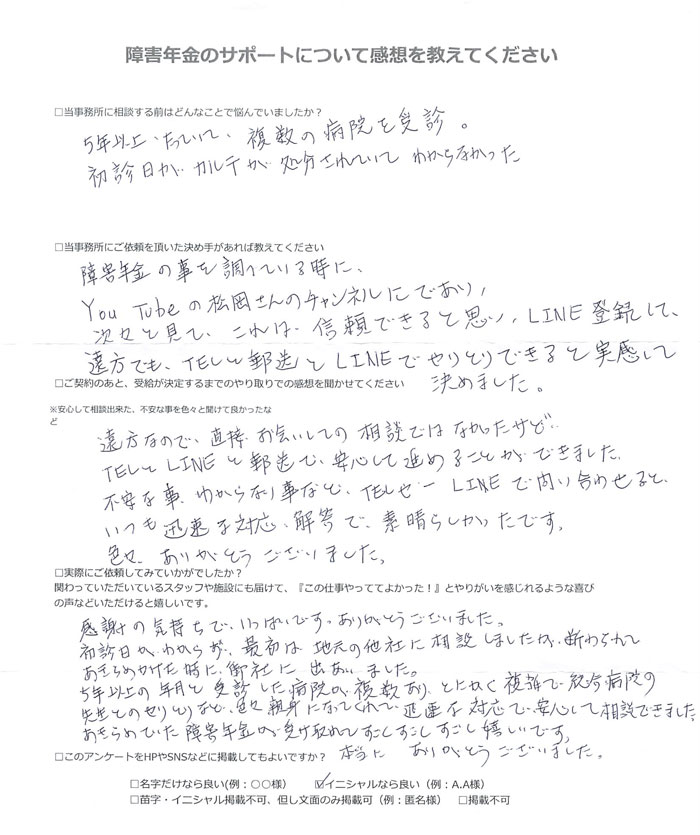 障害年金のサポートについて感想を教えてください
□当事務所に相談する前はどんなことで悩んでいましたか？
5年以上たっていて、複数の病院を受診。
初診日が、カルテが処分されていてわからなかった
□当事務所にご依頼を頂いた決め手があれば教えてください
障害年金の事を調べている時に、
You Tubeの松岡さんのチャンネルにであい、
次々と見て、これは、信頼できると思い、LINE登録して、
遠方でも、TELと郵送とLINEでやりとりできると実感して
決めました。
□ご契約のあと、受給が決定するまでのやり取りでの感想を聞かせてください
※安心して相談出来た、不安な事を色々と聞けて良かったな
ど
遠方なので、直接お会いしての相談ではなかったけど、
TELとLINEと郵送で、安心して進めることができました。
不安な事、わからない事など、TELや LINEで問い合わせると、
いつも迅速な対応、解答で、素晴らしかったです。
色々、ありがとうございました。
□実際にご依頼してみていかがでしたか？
関わっていただいているスタッフや施設にも届けて、『この仕事やっててよかった！』とやりがいを感じれるような喜び
の声などいただけると嬉しいです。
感謝の気持ちで、いっぱいです。ありがとうございました。
初診日が、わからず、最初は地元の他社に相談しましたが、断わられて
あきらめかけた時に、御社に出あいました。
5年以上の年月と受診した病院が、複数あり、とにかく複雑で、総合病院の
先生とのやりとりなど、色々親身になってくれて、迅速な対応で、安心して相談できました。
あきらめていた障害年金が受け取れてすごくすごくすごく嬉しいです。
本当に ありがとうございました。
□このアンケートをHPやSNSなどに掲載してもよいですか？
□名字だけなら良い(例：〇〇様) ☑イニシャルなら良い（例：A.A様）
□苗字・イニシャル掲載不可、但し文面のみ掲載可（例：匿名様） □掲載不可